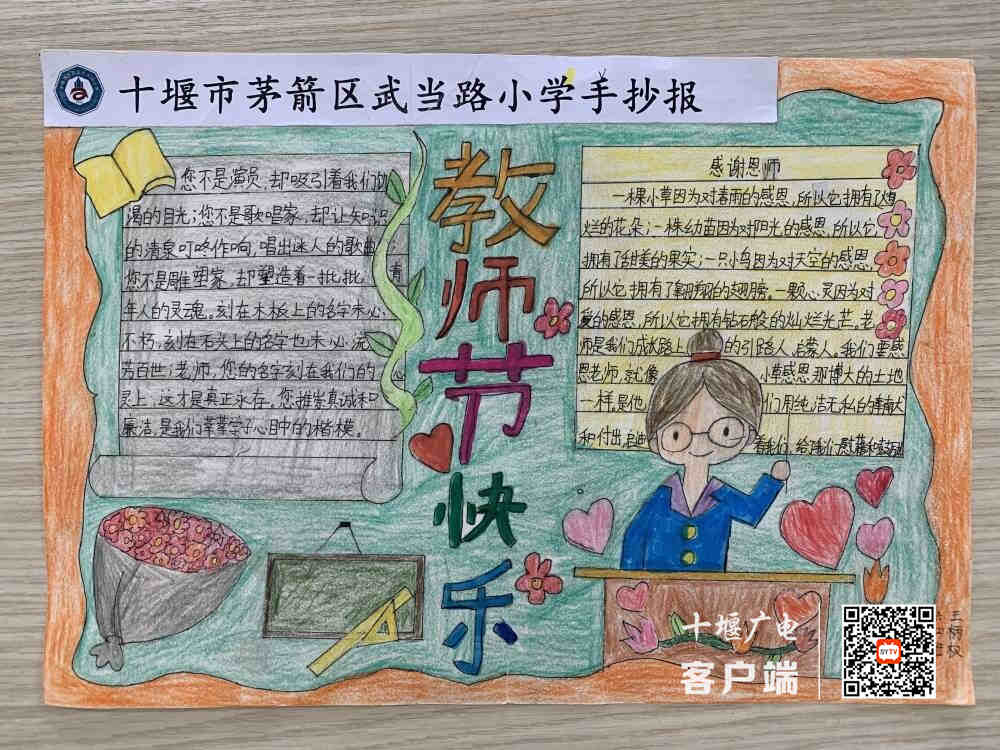 十堰市茅箭区武当路小学手抄报
您不是演员,却吸引着我们饥
渴的目光;您不是歌唱家,却让知识
的清泉叮咚作响,唱出迷人的歌曲;
您不是雕塑家,却塑造着一批批青
年人的灵魂。刻在木板上的名字未必
不朽,刻在石头上的名字也未必流
芳百世;老师,您的名字刻在我们的心
灵上,这才是真正永存。您推崇真诚和
廉洁,是我们莘莘学子心目中的楷模。
教师节快乐
感谢恩师
一棵小草因为对春雨的感恩,所以它拥有了灿
烂的花朵;一株幼苗因为对阳光的感恩,所以它,
拥有了甜美的果实;一只小鸟因为对天空的感恩,
所以它拥有了翱翔的翅膀。一颗心灵因为对
爱的感恩,所以它拥有钻石般的灿烂光芒。老
师是我们成长路上的引路人,启蒙人。我们要感
恩老师,就像小草感恩那博大的土地
一样。是他们用纯洁无私的
和付出,着我们,给我们
十堰广电
客户端
SYTV